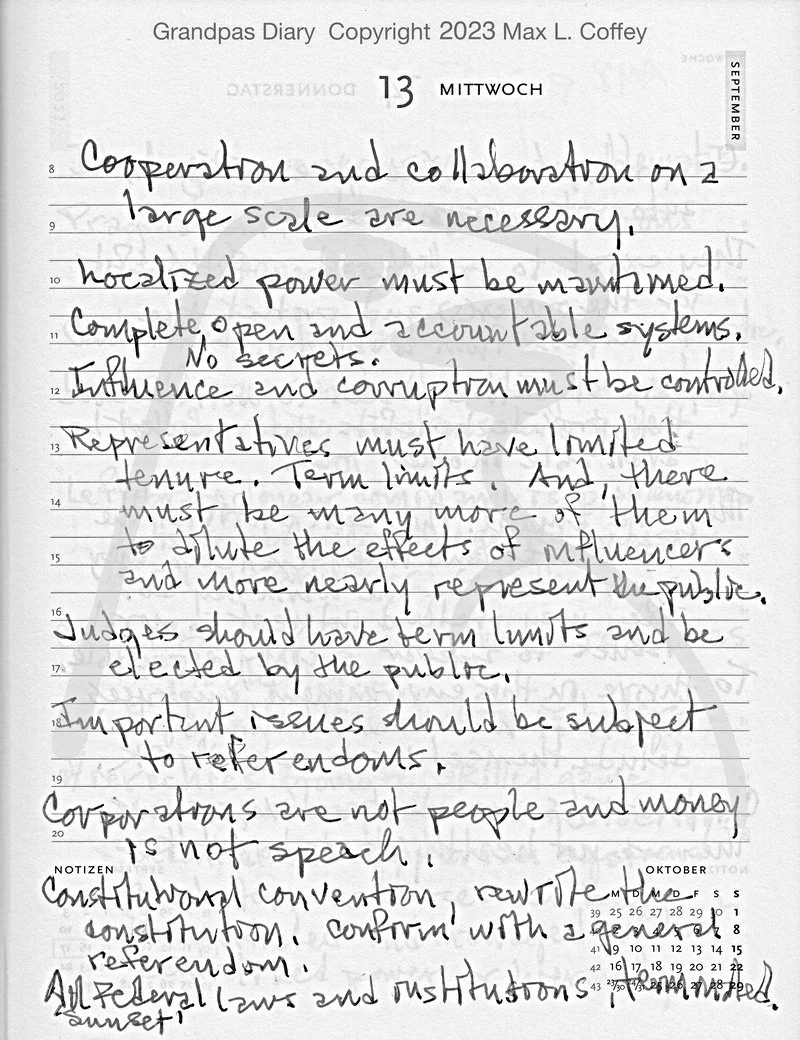 Grandpas Diary Copyright 2023 Max L. Coffey
13 MITTWOCH
SEPTEMBER
8 Cooperation and collaboration on a
large scale are necessary.
9
10 Localized power must be maintained.
11 Complete, open and accountable systems.
No secrets.
12 Influence and corruption must be controlled.
13 Representatives must have limited
tenure. Term limits. And, there
14 must be many more of them
to dilute the effects of influencers
15
and more nearly represent the public.
16 Judges should have term limits and be
17 elected by the public.
18 Important issues should be subject
to referendoms.
19
Corporations are not people and money
20
is not speach.
NOTIZEN
OKTOBER
Constitutional convention, rewrite the
M D M D F S S
39 25 26 27 28 29 30 1
constitution. Confirm with a general
8
referendom.
41 9 10 11 12 13 14 15
42 16 17 18 19 20 21 22
43 23/30 24/31 25 26 27 28 29
All Federal laws and institutions, terminated.
"Sunset"